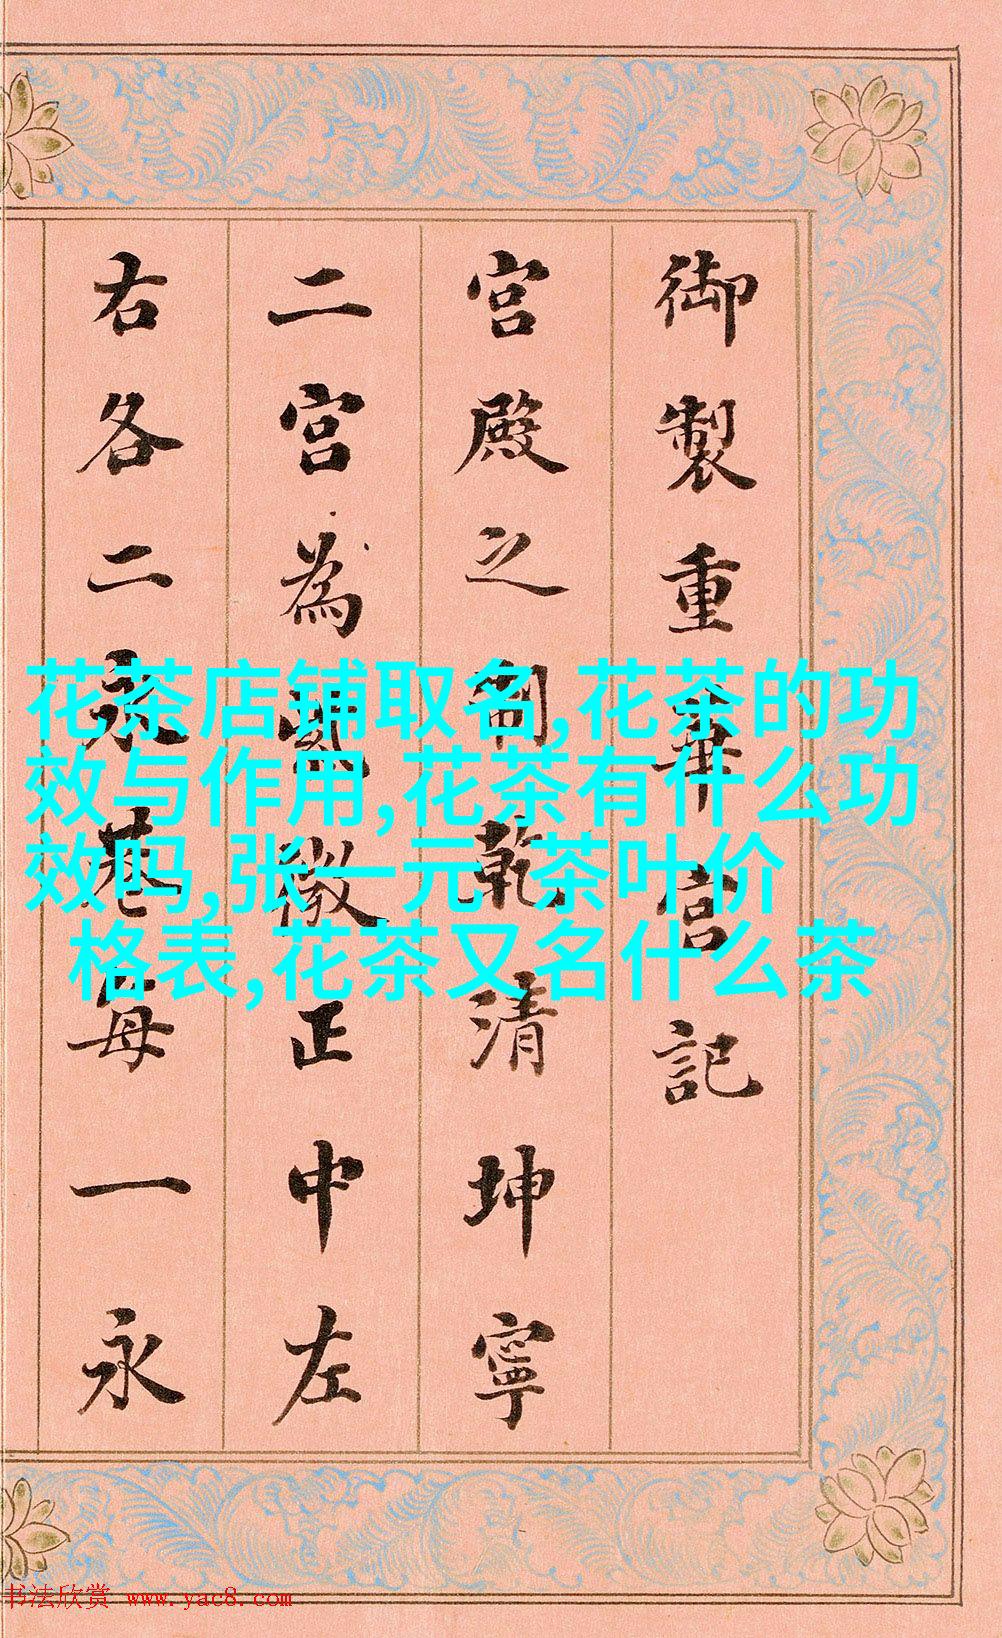 御製重華宮記
宮殿之制乾清坤寧
二宮為紫微正中左
右各二永巷每一永
花茶店铺取名,花茶的功
效与作用,花茶有什么功
效吗,张一元 茶叶价
格表,花茶又名什么茶
书法欣赏 www.yac8.com